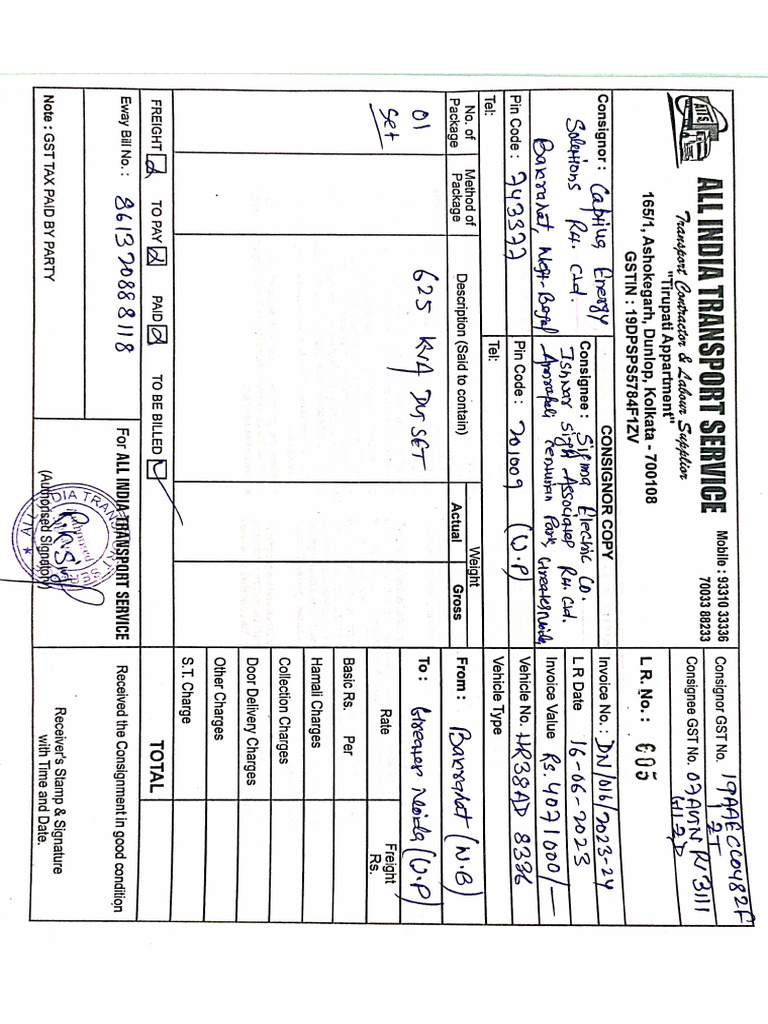 AITS
ALL INDIA TRANSPORT SERVICE
Transport Contractor & Labour Supplier
"Tirupati Appartment"
165/1, Ashokegarh, Dunlop, Kolkata - 700108
GSTIN : 19DPSPS5784F1ZV
Mobile : 93310 33336
70033 88233
Consignor GST No. 19AAECC0482F
1ZT
Consignee GST No. 07
CONSIGNOR COPY
L.R. No. : 605
Consignor : Energy
Solutions
Bakrahat, West-Bengal
Pin Code : 743377
Tel:
Consignee : Sigma Electric Co.
Ishwar Singh Associates
Centurian Park, Greater Noida
Pin Code : 201009 (U.P)
Tel:
Invoice No. : DN/016/2023-24
L R Date 16-06-2023
Invoice Value Rs. 4071000/-
Vehicle No. HR38AD 8336
Vehicle Type
No. of Package
Method of Package
Description (Said to contain)
Weight
Actual
Gross
01
Set
625 KVA DG SET
From : Bakrahat (W.B)
To : Greater Noida (U.P)
Rate
Freight Rs.
Basic Rs. Per
Hamali Charges
Collection Charges
Door Delivery Charges
Other Charges
S.T. Charge
TOTAL
FREIGHT TO PAY PAID TO BE BILLED ✓
Eway Bill No. : 861370888118
Note : GST TAX PAID BY PARTY
For ALL INDIA TRANSPORT SERVICE
(Authorised Signatory)
Received the Consignment in good condition
Receiver's Stamp & Signature
with Time and Date.